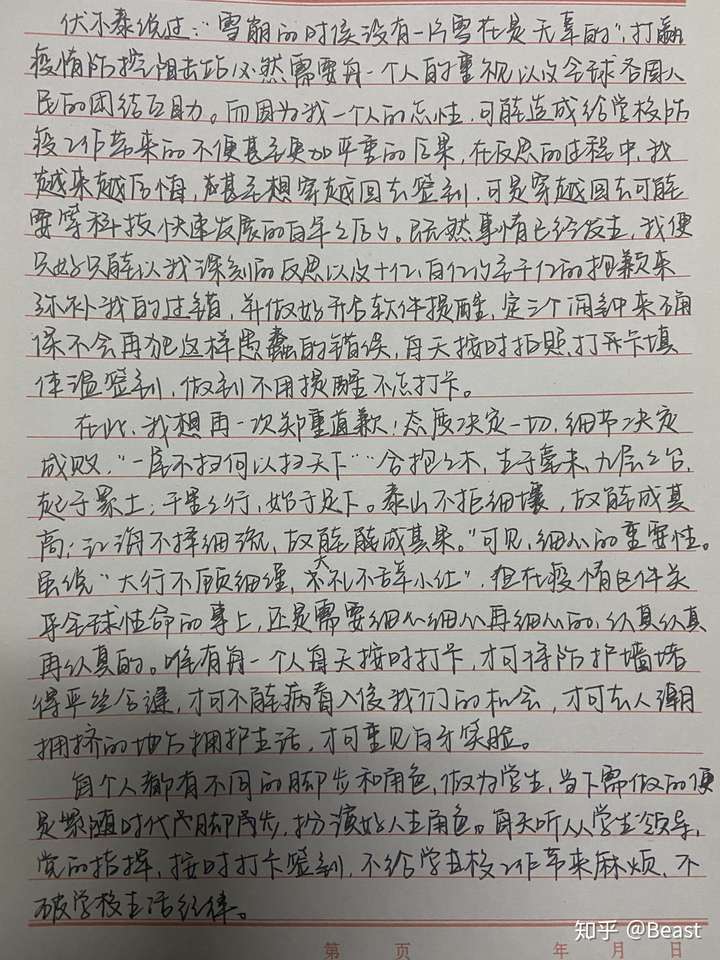 伏尔泰说过:“雪崩的时候没有一片雪花是无辜的”,打赢
疫情防控阻击战必然需要每一个人的重视以及全球各国人
民的团结互助。而因为我一个人的忘性,可能造成给学校防
疫工作带来的不便甚至更加严重的后果,在反思的过程中,我
越来越后悔,甚至想穿越回去签到,可是穿越回去可能
要等科技快速发展的百年之后。既然事情已经发生,我便
只好只能以我深刻的反思以及十亿,百亿乃至千亿的抱歉来
弥补我的过错,并做好开启软件提醒,定三个闹钟来确
保不会再犯这样愚蠢的错误,每天按时拍照,打开卡填
体温签到,做到不用提醒不忘打卡。
在此,我想再一次郑重道歉!态度决定一切,细节决定
成败,“一屋不扫何以扫天下…合抱之木,生于毫末,九层之台,
起于累土;千里之行,始于足下。泰山不拒细壤,故能成其
高;江海不择细流,故能成其果。”可见,细心的重要性。
虽说“大行不顾细谨,大礼不辞小让”,但在疫情这件关
乎全球性命的事上,还是需要细心细心再细心的,认真认真
再认真的。唯有每一个人每天按时打卡,才可将防护墙堵
得严丝合缝,才可不给病毒入侵我们的机会,才可去人潮
拥挤的地方拥护生活,才可重见白牙笑脸。
每个人都有不同的脚步和角色,做为学生,当下需做的便
是紧随时代的脚步,扮演好人生角色。每天听从学生领导,
党的指挥,按时打卡签到,不给学校工作带来麻烦,不
破学校生活纪律。
第 页 年 月 日
知乎 @Beast